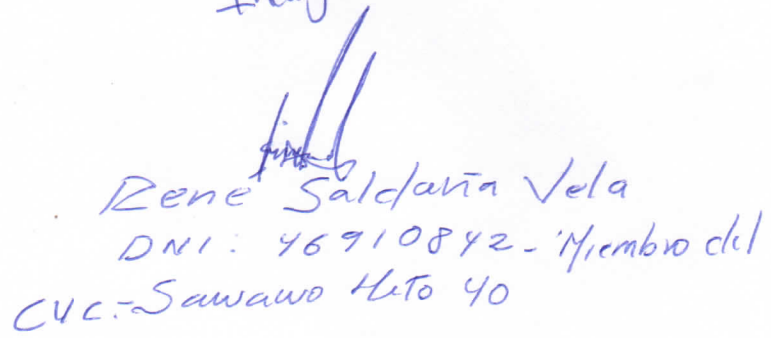 Rene Saldaña Vela
DNI: 46910842 - Miembro del
CVC - Sawawo Hito 40